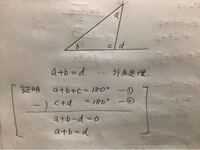 a
b c d
a+b=d … 外角定理
証明 a+b+c=180° -①
-) c+d =180° -②
a+b-d=0
a+b=d